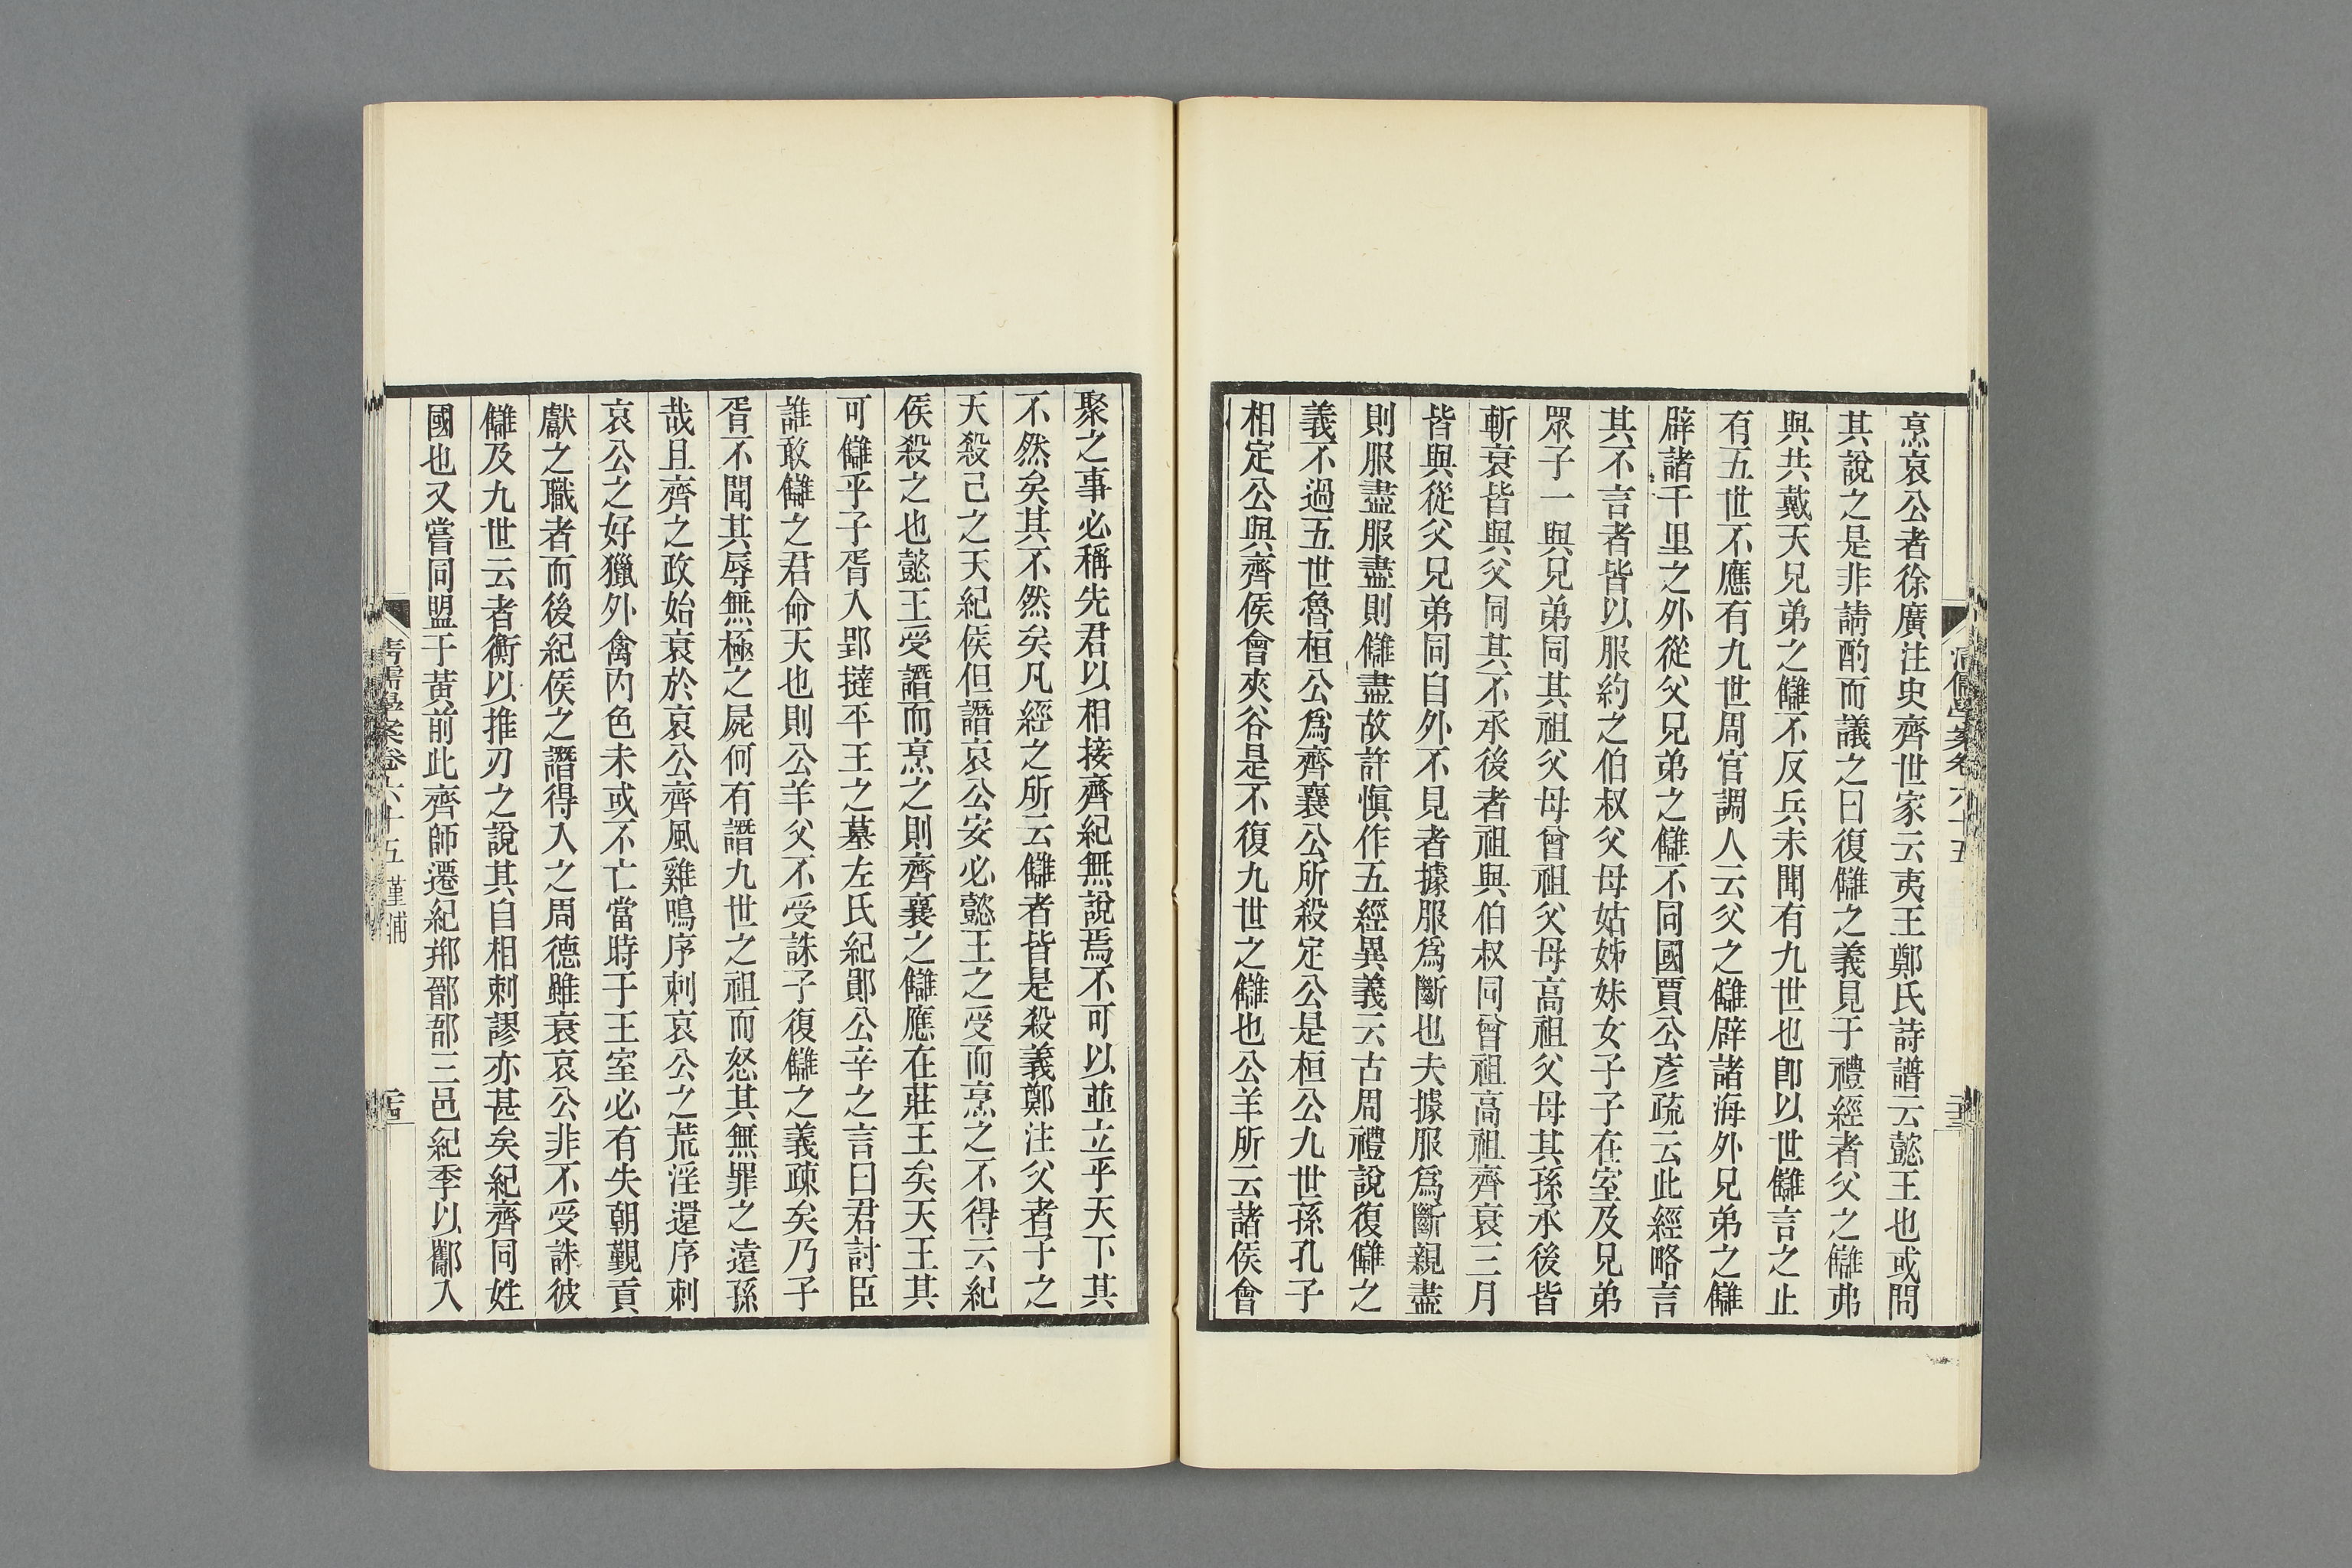 烹哀公者徐廣注史齊世家云夷王鄭氏詩譜云懿王也或問
其說之是非請酌而議之曰復讎之義見于禮經者父之讎弗
與共戴天兄弟之讎不反兵未聞有九世也卽以世讎言之止
有五世不應有九世周官調人云父之讎辟諸海外兄弟之讎
辟諸千里之外從父兄弟之讎不同國賈公彥疏云此經略言
其不言者皆以服約之伯叔父母姑姊妹女子子在室及兄弟
眾子一與兄弟同其祖父母曾祖父母高祖父母其孫承後皆
斬衰皆與父同其不承後者祖與伯叔同曾祖高祖齊衰三月
皆與從父兄弟同自外不見者據服爲斷也夫據服爲斷親盡
則服盡服盡則讎盡故許愼作五經異義云古周禮說復讎之
義不過五世魯桓公爲齊襄公所殺定公是桓公九世孫孔子
相定公與齊侯會夾谷是不復九世之讎也公羊所云諸侯會
清儒學案卷六十五
聚之事必稱先君以相接齊紀無說焉不可以並立乎天下其
不然矣其不然矣凡經之所云讎者皆是殺義鄭注父者子之
天殺己之天紀侯但譖哀公安必懿王之受而烹之不得云紀
侯殺之也懿王受譖而烹之則齊襄之讎應在莊王矣天王其
可讎乎子胥入郢撻平王之墓左氏紀鄖公辛之言曰君討臣
誰敢讎之君命天也則公羊父不受誅子復讎之義疎矣乃子
胥不聞其辱無極之屍何有譖九世之祖而怒其無罪之遠孫
哉且齊之政始衰於哀公齊風雞鳴序刺哀公之荒淫還序刺
哀公之好獵外禽內色未或不亡當時于王室必有失朝覲貢
獻之職者而後紀侯之譖得入之周德雖衰哀公非不受誅彼
讎及九世云者衡以推刃之說其自相刺謬亦甚矣紀齊同姓
國也又嘗同盟于黃前此齊師遷紀郱鄑郚三邑紀季以酅入
清儒學案卷六十五 堇浦